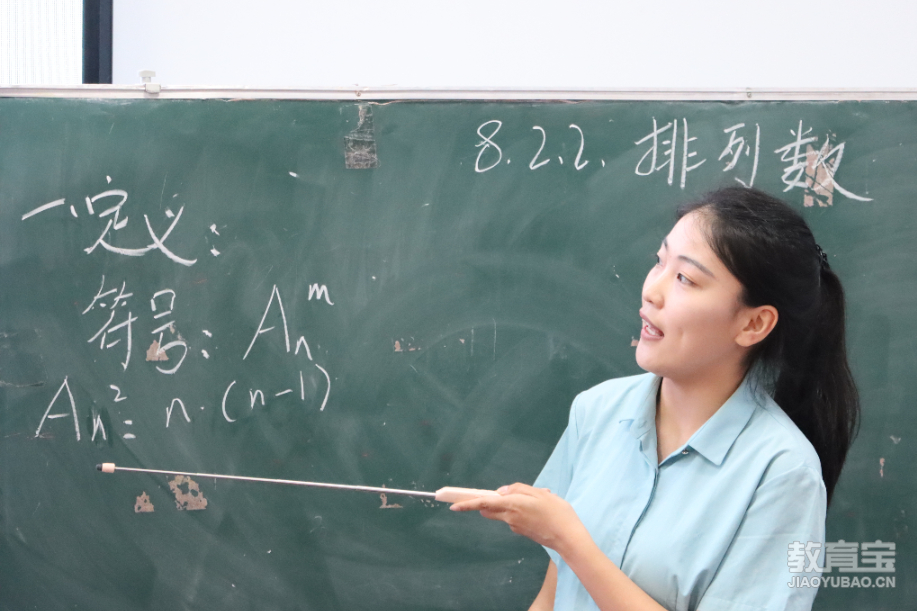 8.2.2. 排列数
一、定义:
符号: Aₙᵐ
Aₙ² = n·(n-1)
教育宝
JIAOYUBAO.CN